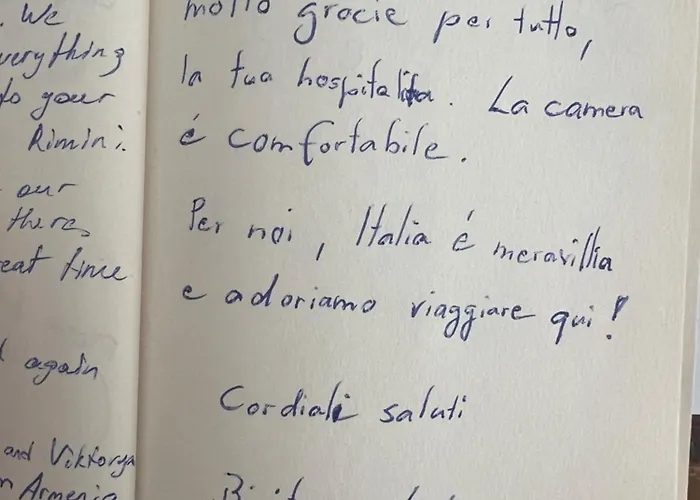 . We
verything
to your
Rimini.
our
there
eat time
again
and Viktorya
n Armenia
molto grocie per tutto,
la tua hospitalita. La camera
é comfortabile.
Per noi, Italia é meravillia
e adoriamo viaggiare qui!
Cordiali saluti